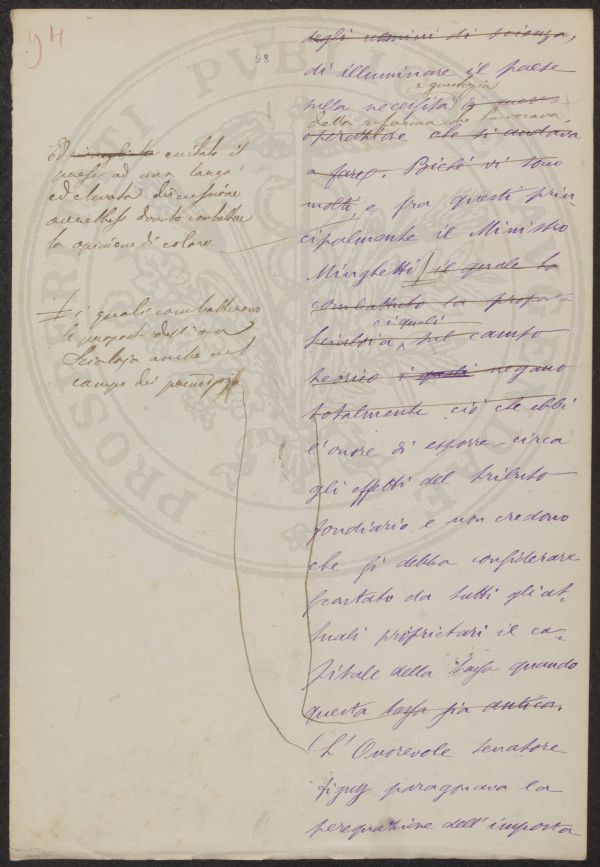 94
98
degli uomini di scienza,
di illuminare il paese
e giustizia
nella necessità di
della riforma che s'invocava
operazione che si andava
a fare. Poichè vi sono
molti, e fra questi prin-
cipalmente il Ministro
Minghetti il quale ha
combattuto la proposta
i quali
Scialoia sul campo
teorico i quali negano
totalmente ciò che ebbi
l'onore di esporre circa
gli effetti del tributo
fondiario e non credono
che si debba considerare
scontato da tutti gli at-
tuali proprietari il ca-
pitale della tassa quando
questa tassa sia antica.
L'Onorevole senatore
paragonava la
perequazione dell'imposta
Ed evitato il
paese ad una larga
ed elevata discussione
avrebbesi dovuto combattere
la opinione di coloro
i quali combatterono
le proposte dell'on
Scialoja anche nel
campo dei principii
PROSPERITATI PUBLICAE AUGENDAE